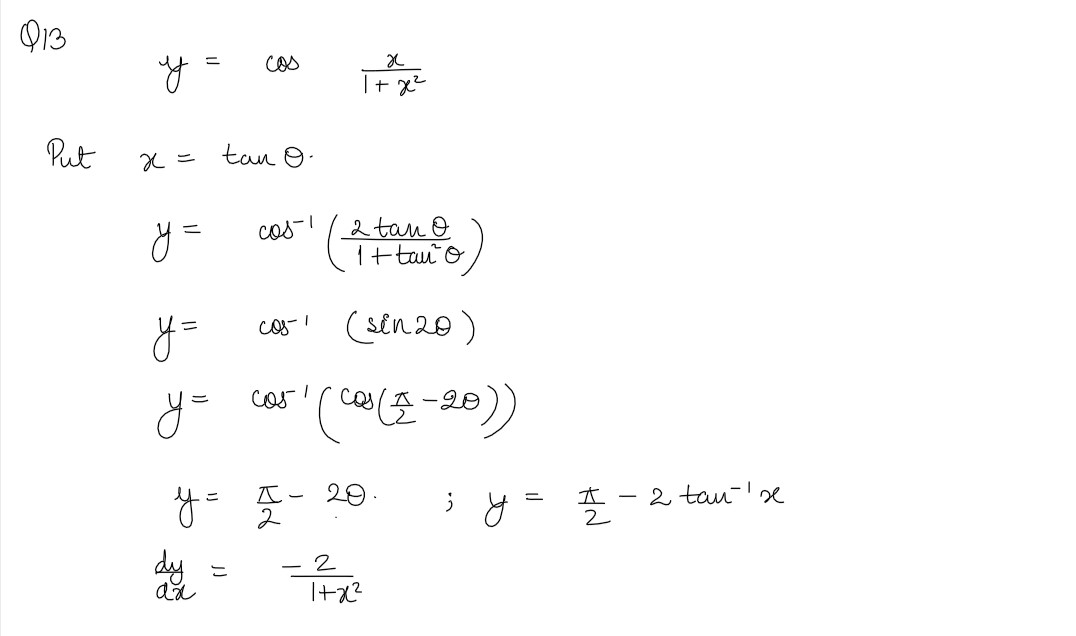 Q13
y = cos x/(1 + x²)
Put x = tan θ.
y = cos⁻¹ (2 tan θ/(1 + tan² θ))
y = cos⁻¹ (sin 2θ)
y = cos⁻¹ (cos(π/2 − 2θ))
y = π/2 − 2θ. ; y = π/2 − 2 tan⁻¹ x
dy/dx = −2/(1+x²)